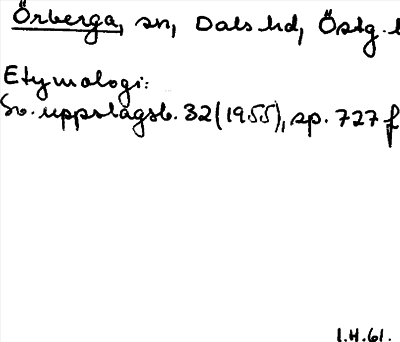 Örberga, sn, Dals hd, Östg. l
Etymologi:
Sv. uppslagsb. 32 (1955), sp. 727 f
I.H.61.